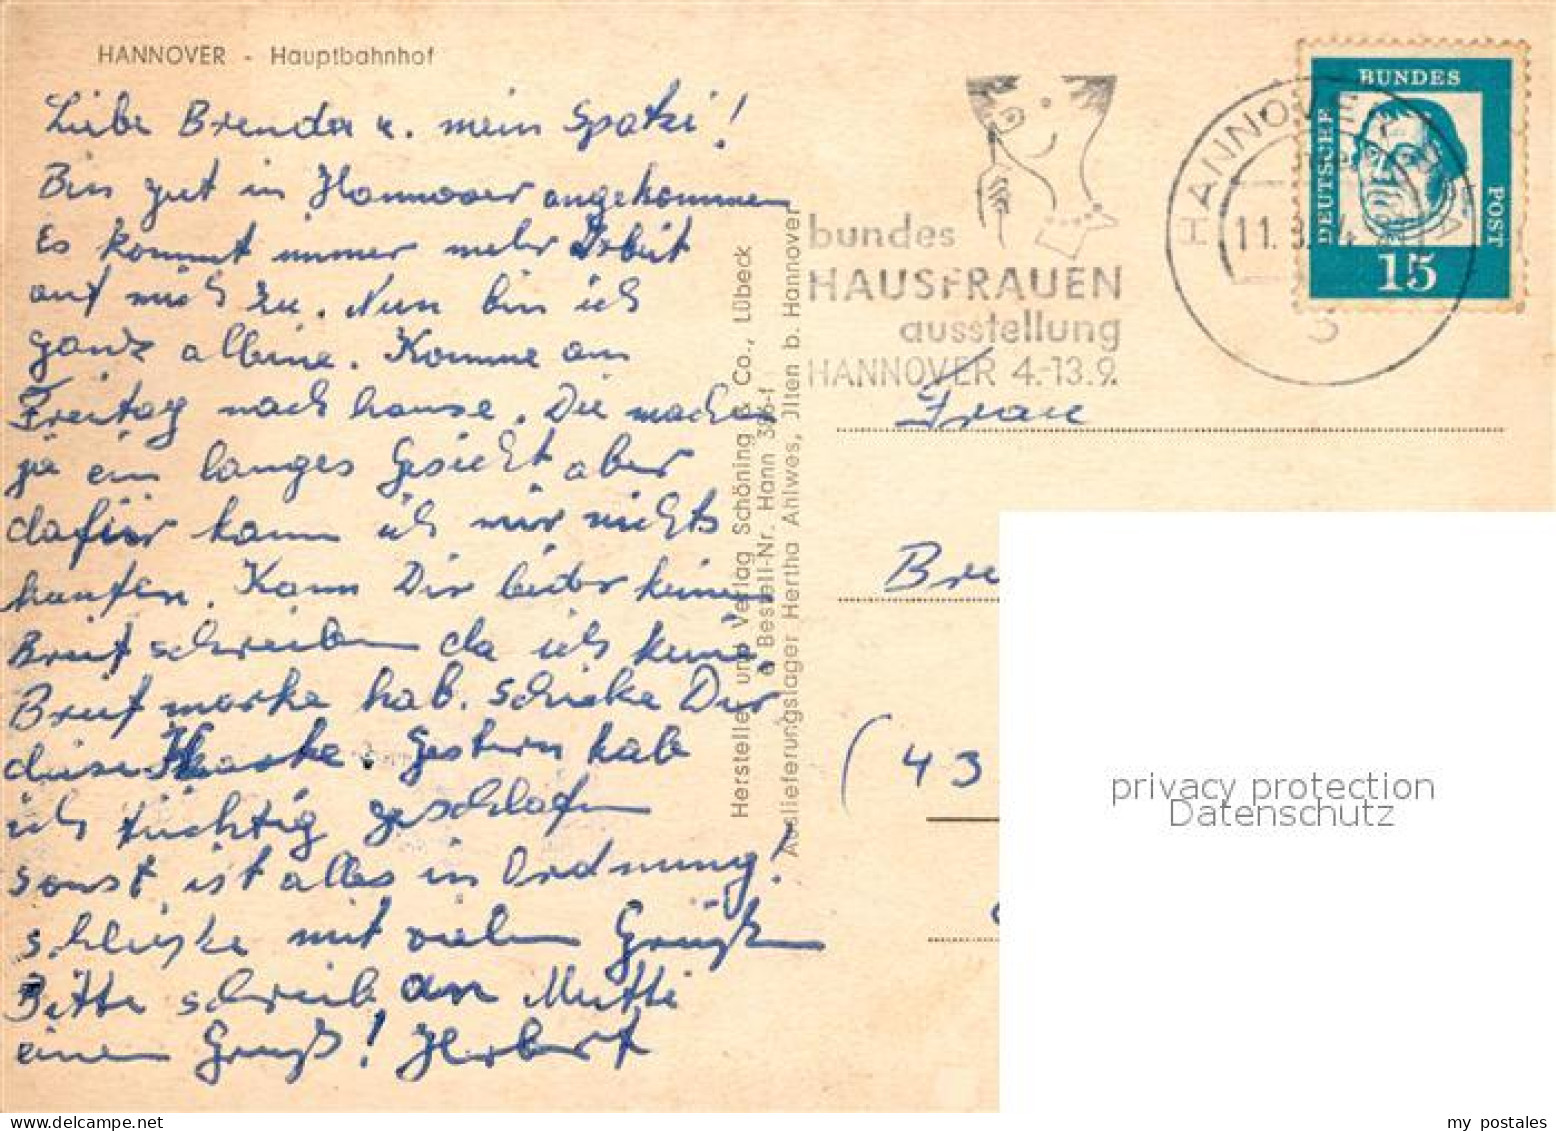 HANNOVER - Hauptbahnhof
Liebe Brenda u. mein Spatzi!
Bin gut in Hannover angekommen
Es kommt immer mehr Arbeit
auf mich zu. Nun bin ich
ganz alleine. Komme am
Freitag nach hause. Die machen
ja ein langes Gesicht aber
dafür kann ich mir nichts
kaufen. Kann Dir leider keinen
Brief schreiben da ich keine
Brief marke hab. Schicke Dir
diese Karte. Gestern hab
ich tüchtig geschlafen
sonst ist alles in Ordnung!
schließe mit vielen Grüßen
Bitte schreib an Mutti
einen Gruß! Herbert
Hersteller und Verlag Schöning & Co., Lübeck
Bestell-Nr. Hann
Auslieferungslager Hertha Ahlwes, Ilten b. Hannover
bundes
HAUSFRAUEN
ausstellung
HANNOVER 4.-13.9.
HANNOVER
11.
3
DEUTSCHE
BUNDES
POST
15
Frau
Bre
(43
privacy protection
Datenschutz
my postales